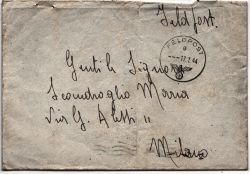 Feldpost.
FELDPOST
a
17.1.44
Gentile Signora
Scandroglio Maria
Via G. Alessi 11
Milano